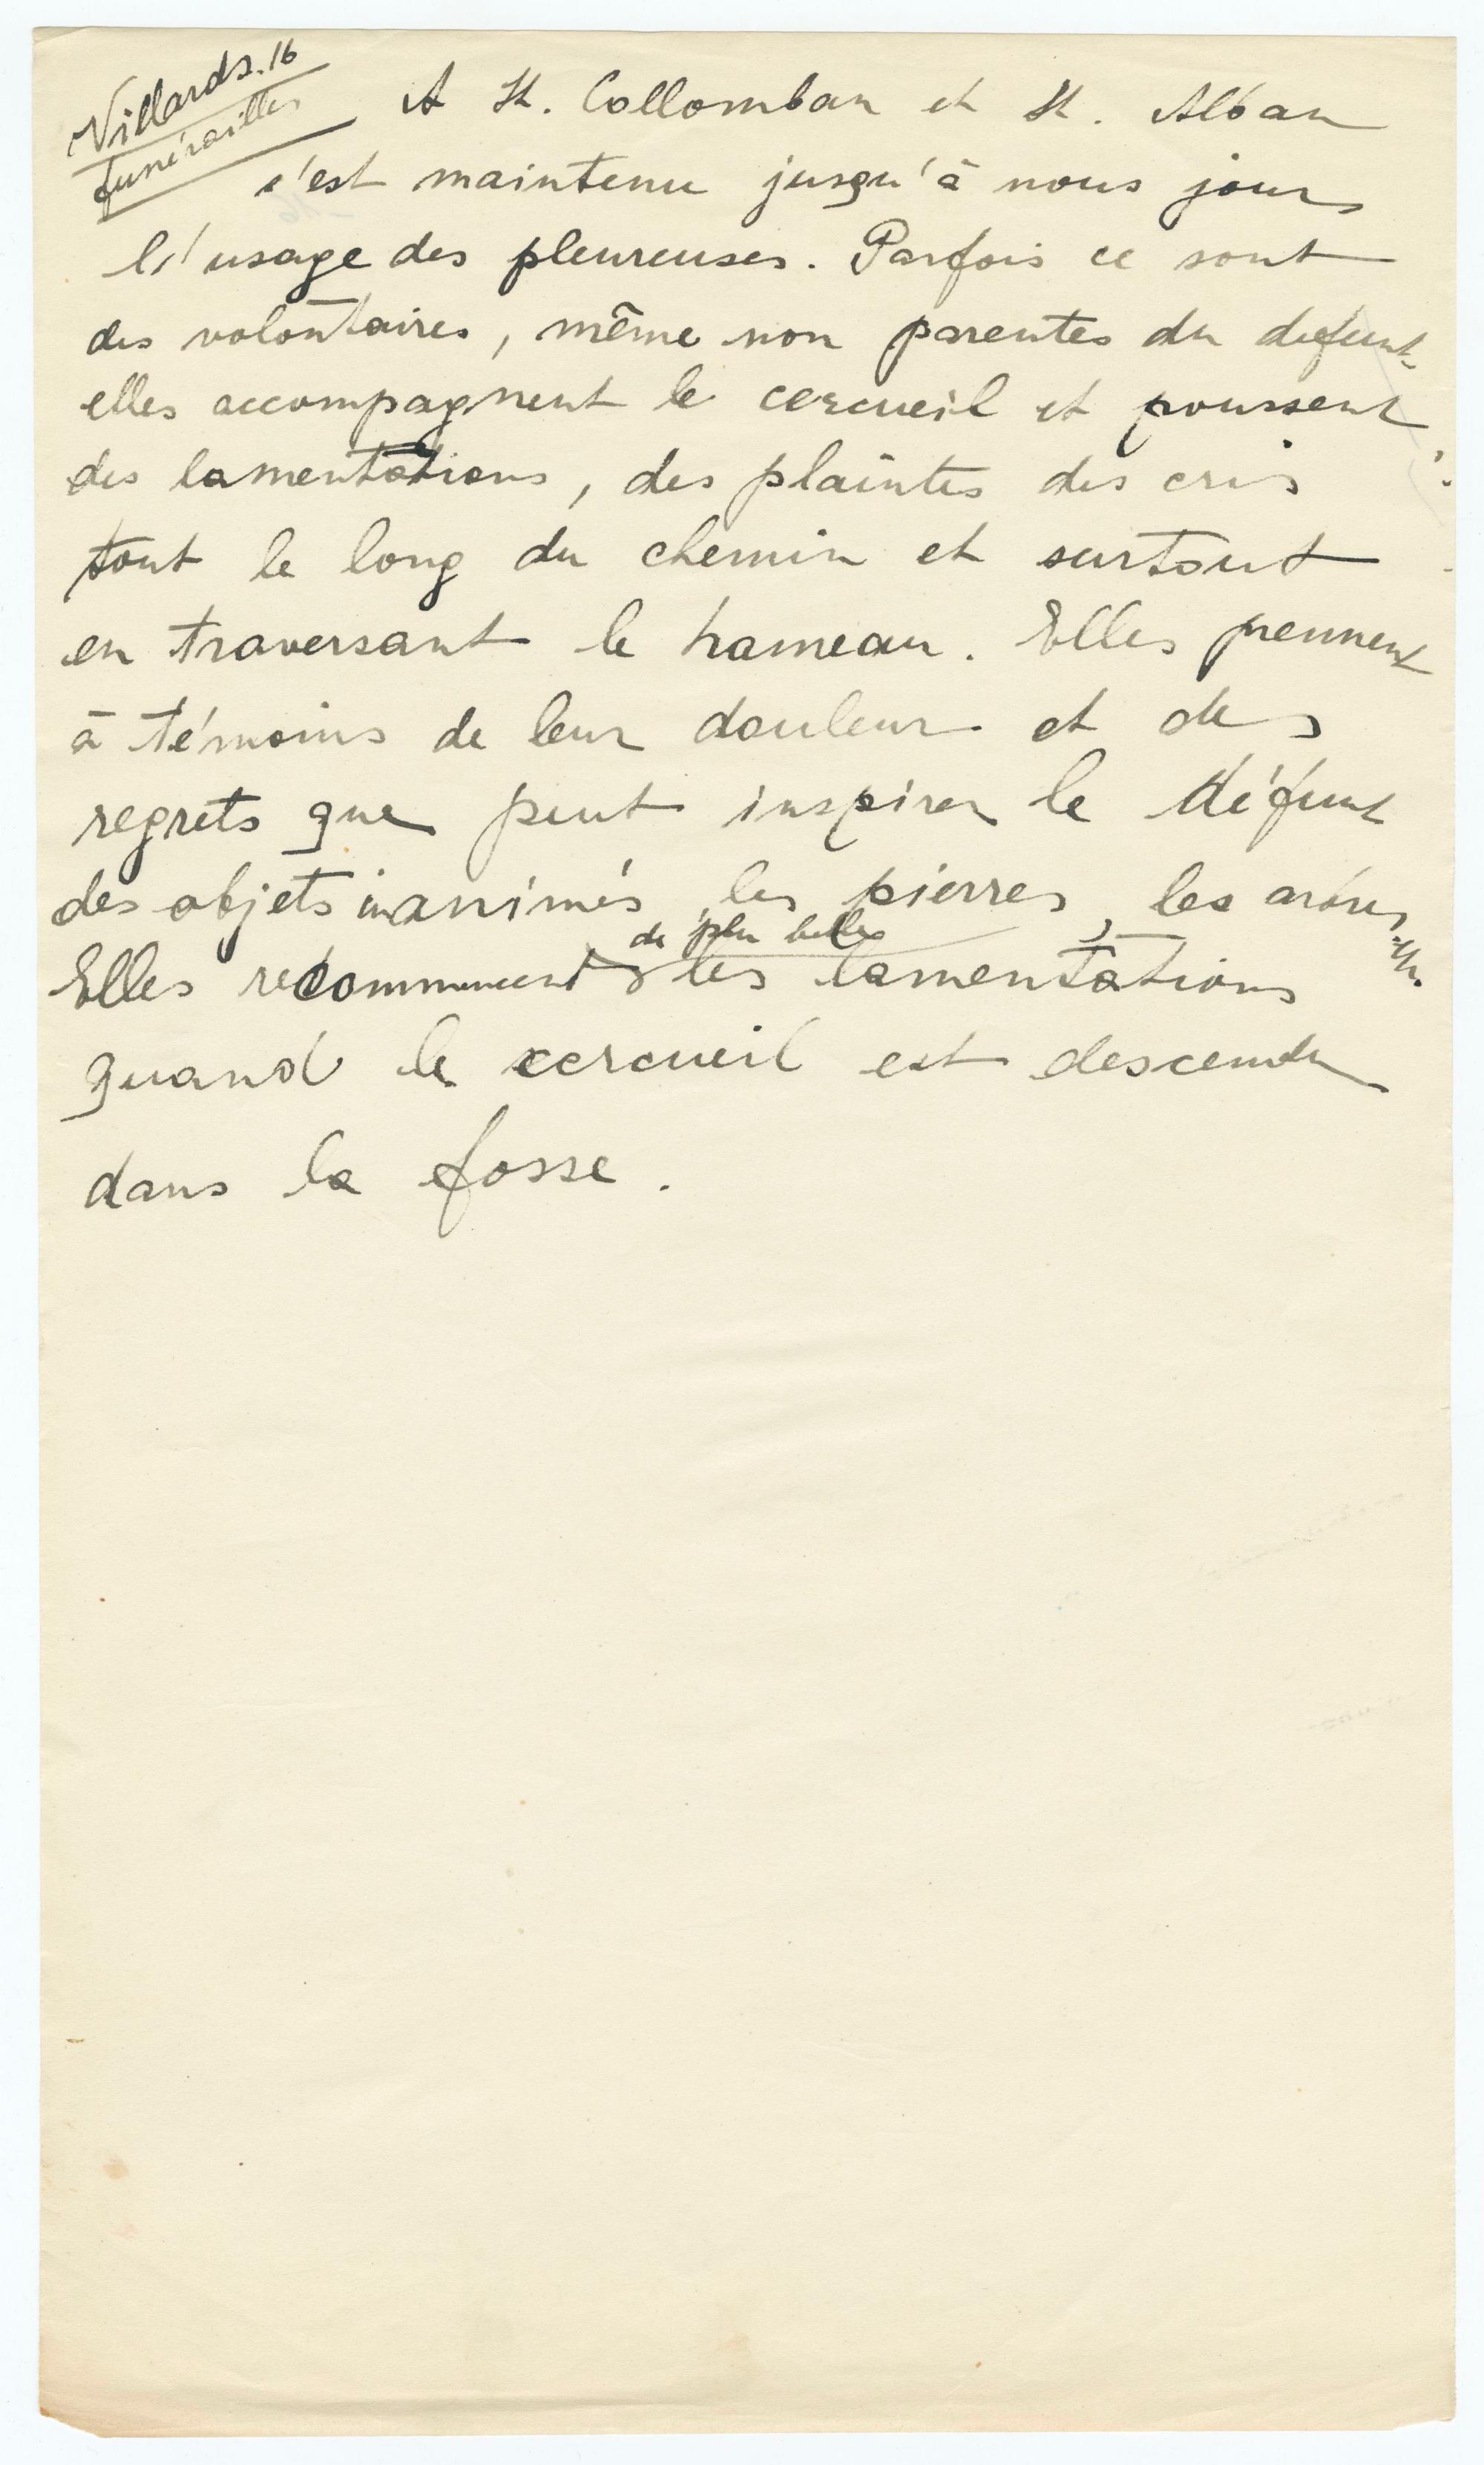 Villards.16
funérailles
A St. Collomban et St. Alban
s'est maintenu jusqu'à nous jours
l'usage des pleureuses. Parfois ce sont
des volontaires, même non parentes du defunt
elles accompagnent le cercueil et poussent
des lamentations, des plaintes des cris
tout le long du chemin et surtout
en traversant le hameau. Elles prennent
à témoins de leur douleur et des
regrets que peut inspirer le défunt
des objets inanimés, les pierres, les arbres etc.
de plus belles
Elles recommencent les lamentations
quand le cercueil est descendu
dans la fosse.